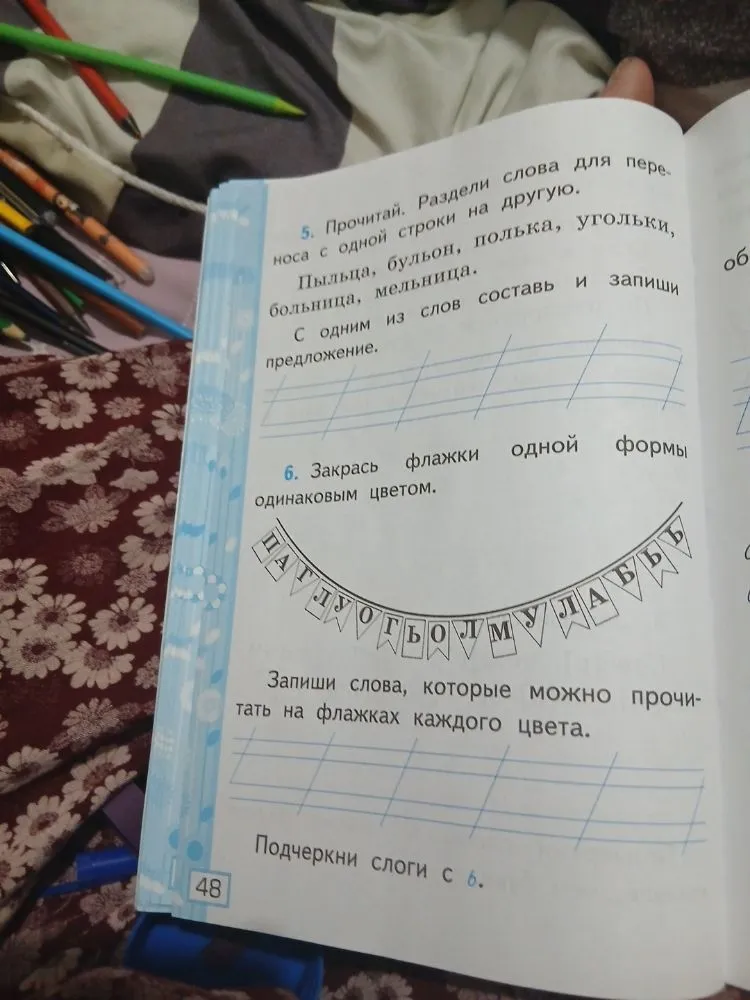 5. Прочитай. Раздели слова для пере-
носа с одной строки на другую.
Пыльца, бульон, полька, угольки,
больница, мельница.
С одним из слов составь и запиши
предложение.
6. Закрась флажки одной формы
одинаковым цветом.
ПАГЛУОГЬОЛМУЛАБЬЬ
Запиши слова, которые можно прочи-
тать на флажках каждого цвета.
Подчеркни слоги с ь.
48
об